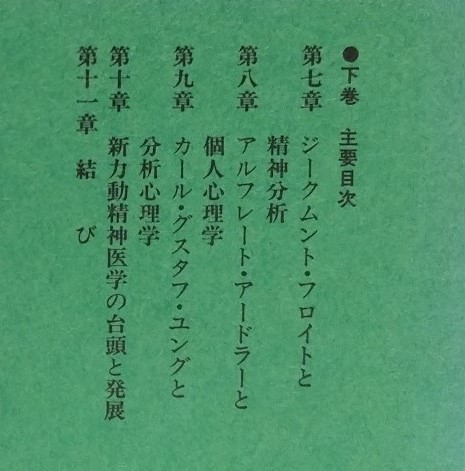 ●下巻 主要目次
第七章 ジークムント・フロイトと
精神分析
第八章 アルフレート・アードラーと
個人心理学
第九章 カール・グスタフ・ユングと
分析心理学
第十章 新力動精神医学の台頭と発展
第十一章 結び